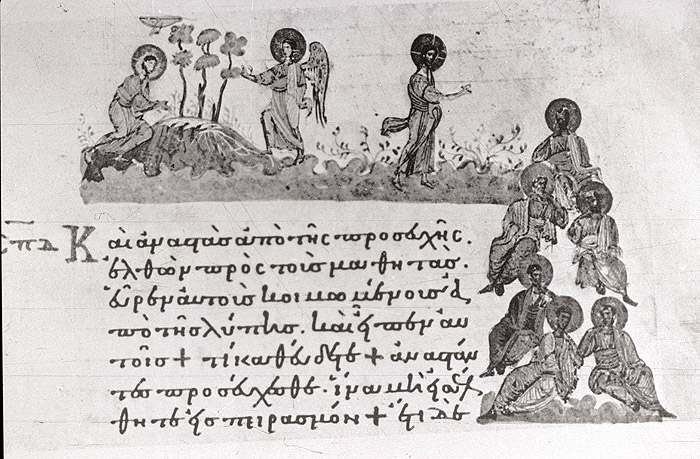 σπδ Καὶ ἀναστὰς ἀπὸ τῆς προσευχῆς.
ἐλθὼν πρὸς τοὺς μαθητὰς.
εὗρεν αὐτοὺς κοιμωμένους ἀ
πὸ τῆς λύπης. καὶ εἶπεν αὐ
τοῖς + τί καθεύδετε + ἀναστάν
τες προσεύχεσθε. ἵνα μὴ εἰσέλ
θητε εἰς πειρασμόν + ἔτι δὲ